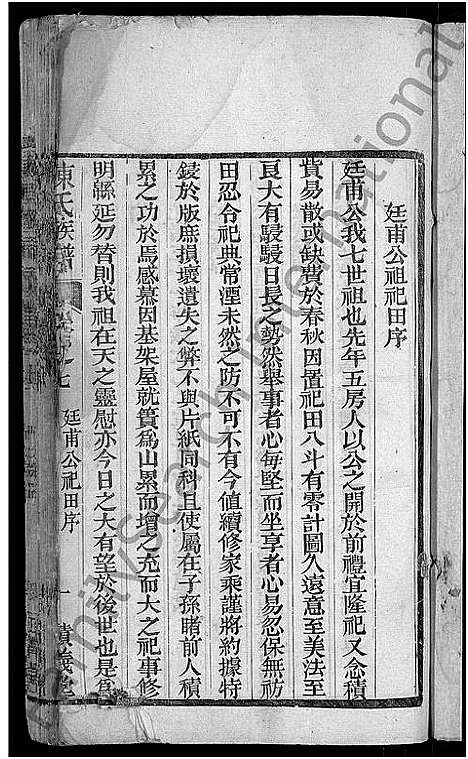 廷甫公祖祀田序
廷甫公我七世祖也先年五房人以公之開於前禮宜隆祀又念積
貲易散或缺費於春秋因置祀田八斗有零計圖久遠意至美法至
良大有駸駸日長之勢然舉事者心每堅而坐享者心易忽保無祊
田忍合祀典常湮未然之防不可不有今値續修家乘謹將約據特
鋟於版庶損壞遺失之弊不與片紙同科且使屬在子孫睹前人積
累之功於焉感慕因基架屋就簣爲山累而增之充而大之祀事修
明緜延勿替則我祖在天之靈慰亦今日之大有望於後世也是爲
陳氏族譜
廷甫公祀田序
一
FamilySearch International